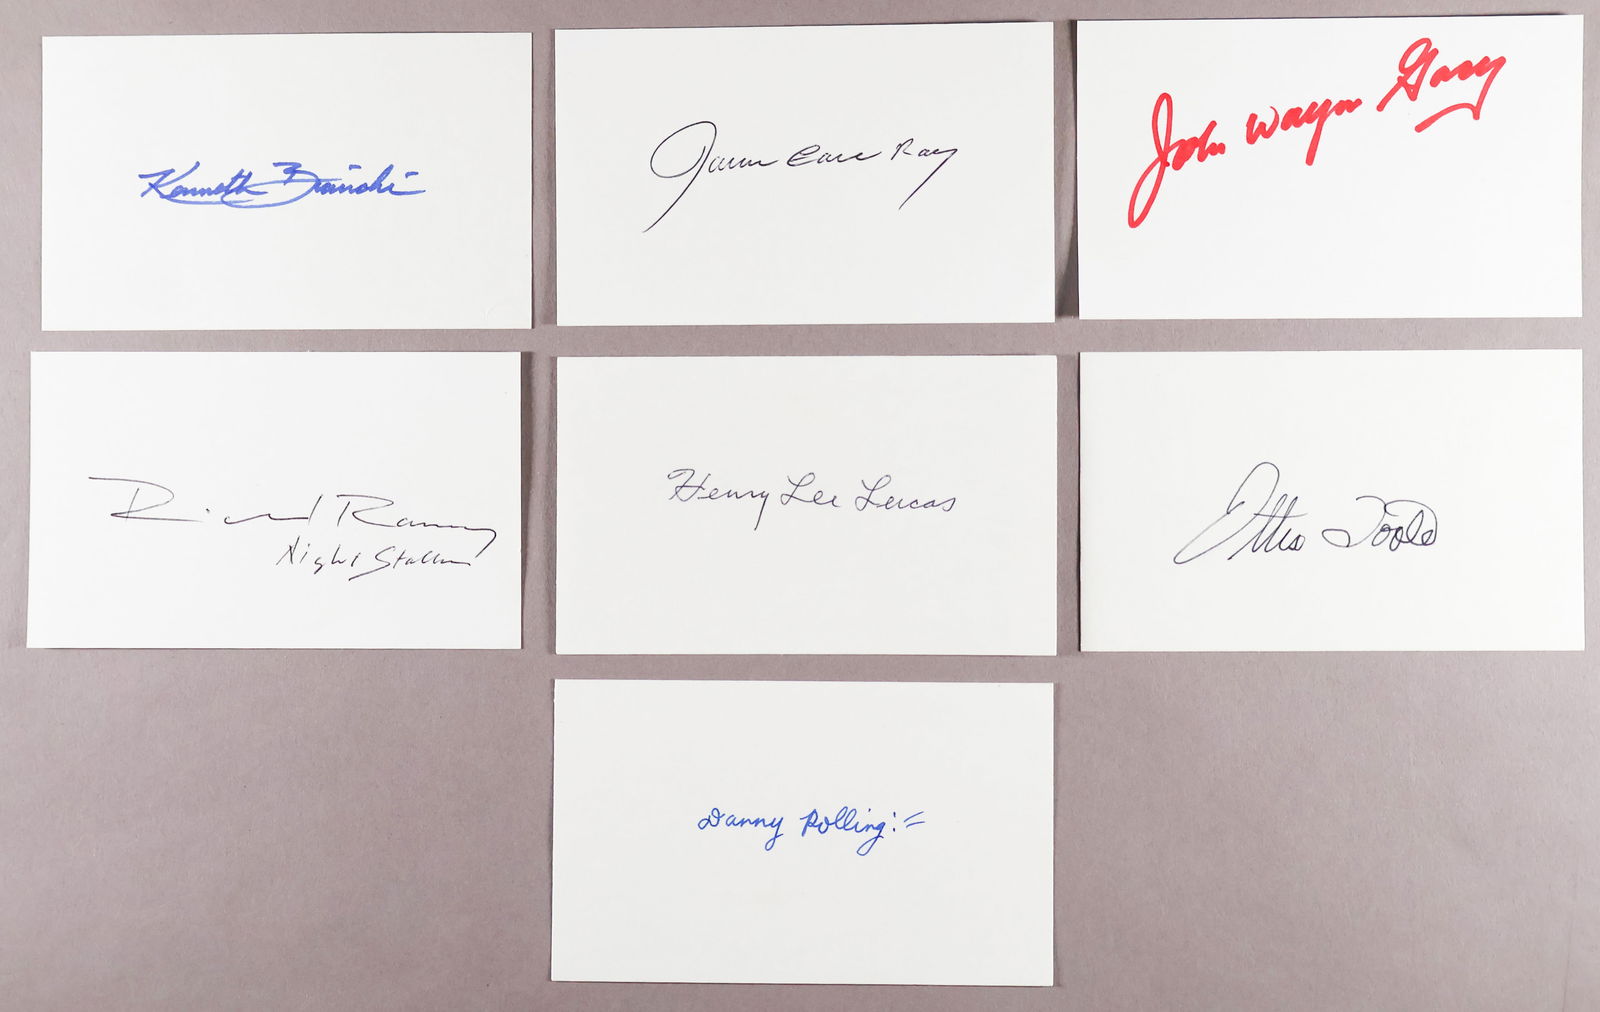 Kenneth Bianchi
James Earl Ray
John Wayne Gacy
Richard Ramirez
Night Stalker
Henry Lee Lucas
Ottis Toole
Danny Rolling:=